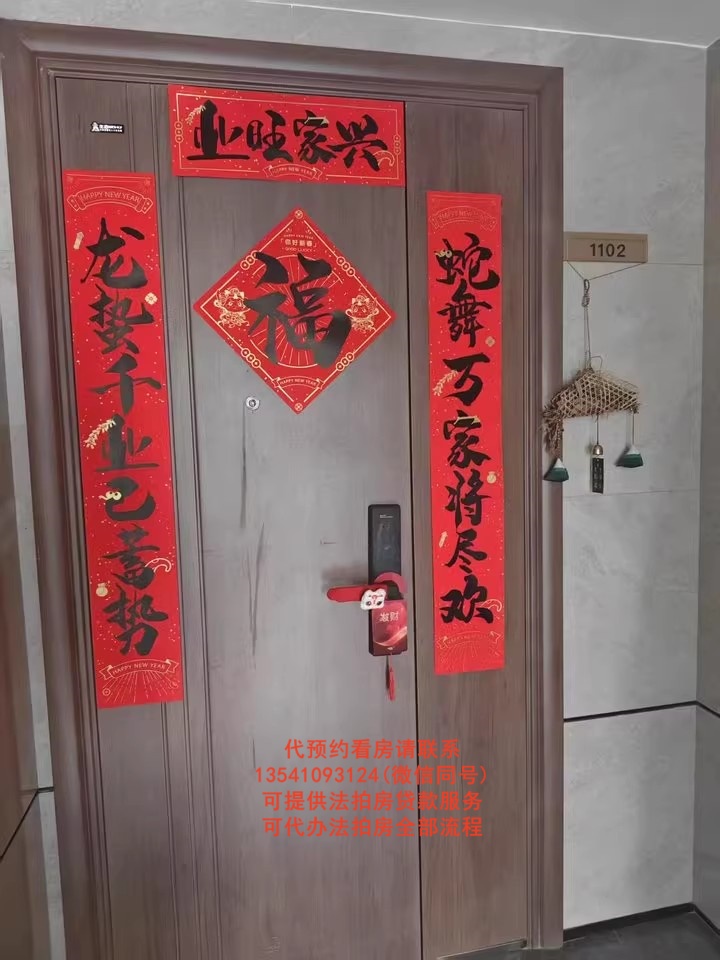 业旺家兴
HAPPY NEW YEAR
HAPPY NEW YEAR
龙蛰千业已蓄势
HAPPY NEW YEAR
「你好新春」
GOOD LUCKY
福
HAPPY NEW YEAR
HAPPY NEW YEAR
蛇舞万家将尽欢
HAPPY NEW YEAR
1102
发财
代预约看房请联系
13541093124(微信同号)
可提供法拍房贷款服务
可代办法拍房全部流程